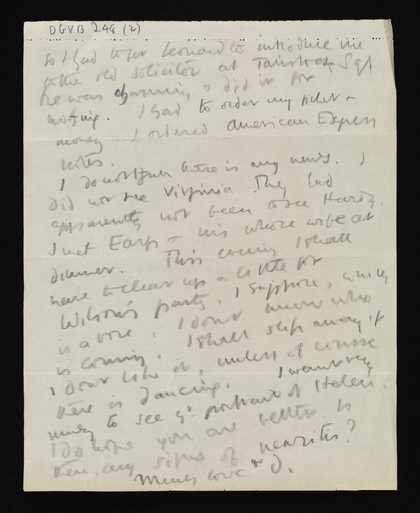 DGVB 248 (2)
So I had to get Leonard to introduce me
to the old solicitor at Tavistock Sq!
he was charming, & did it for
nothing. I had to order my ticket –
money I ordered American Express
notes.
I do not think there is any news. I
did not see Virginia. They had
apparently not been to see Hardy.
I met Earp – his whore wife at
dinner. This evening I shall
have to clear up a little for
Wilson's party, I suppose, which
is a bore. I don't know who
is coming. I shall slip away if
I don't like it, unless of course
there is dancing. I want very
much to see yr portrait of Helen.
I do hope you are better. Is
there any sign of neuritis?
Much love D.